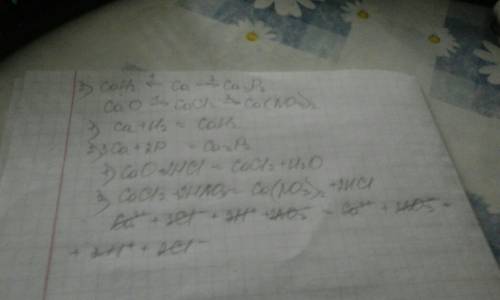 3) CaH₂ ← Ca → Ca₃P₂
CaO → CaCl₂ → Ca(NO₃)₂
Ca + H₂ = CaH₂
3Ca + 2P = Ca₃P₂
CaO + 2HCl = CaCl₂ + H₂O
CaCl₂ + 2HNO₃ = Ca(NO₃)₂ + 2HCl
Ca²⁺ + 2Cl⁻ + 2H⁺ + 2NO₃⁻ = Ca²⁺ + 2NO₃⁻ +
+ 2H⁺ + 2Cl⁻